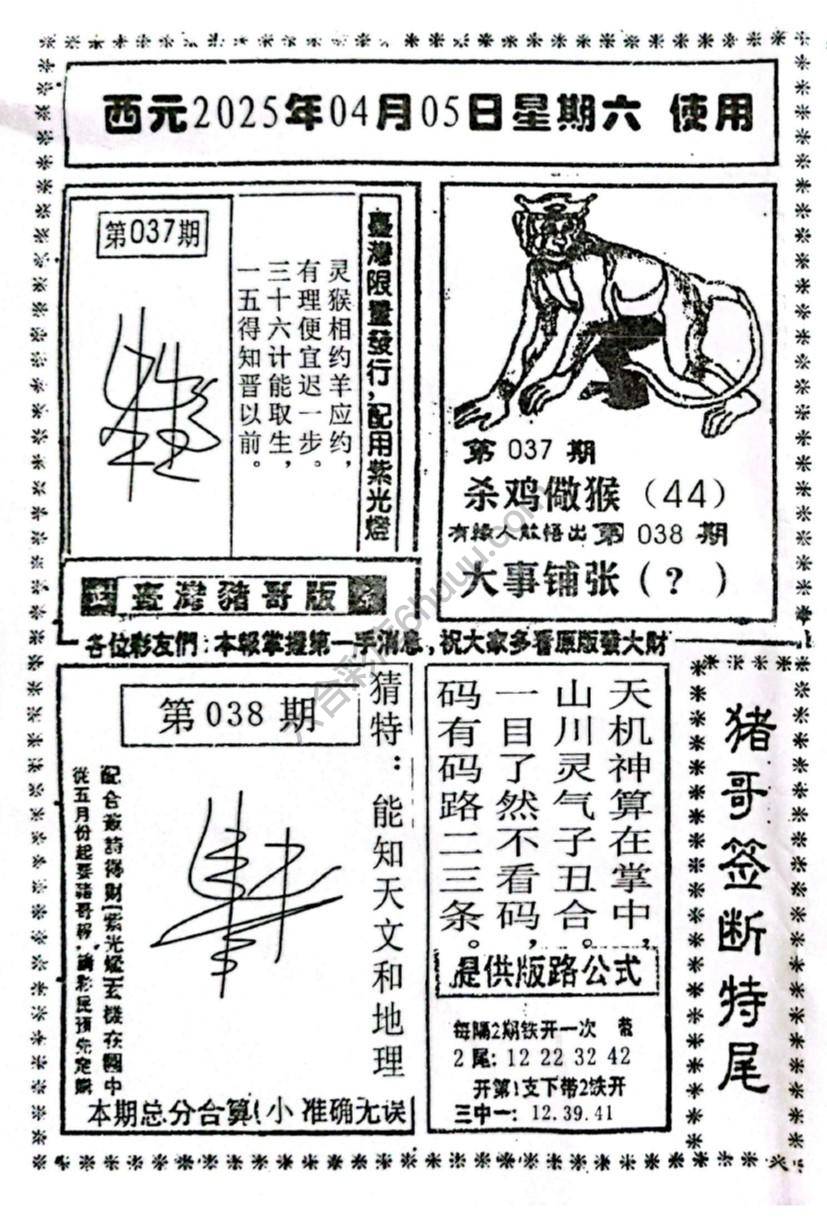 西元2025年04月05日星期六 使用
第037期
灵猴相约羊应约，
有理便宜迟一步。
三十六计能取生，
一五得知晋以前。
臺灣限量發行，配用紫光燈
第 037 期
杀鸡儆猴（44）
有缘人敬悟出第 038 期
大事铺张（？）
臺灣豬哥版
各位彩友們：本報掌握第一手消息，祝大家多看原版發大財
第 038 期
猜特：能知天文和地理
配合簽詩得財(紫光燈)玄機在圖中
從五月份起要豬哥報，請彩民預先定購
本期总分合算(小 准确无误
天机神算在掌中，
山川灵气子丑合。
一目了然不看码，
码有码路二三条。
提供版路公式
每隔2期铁开一次
2尾：12 22 32 42
开第1支下带2铁开
三中一：12.39.41
猪哥签断特尾
六合彩店6huuu.com